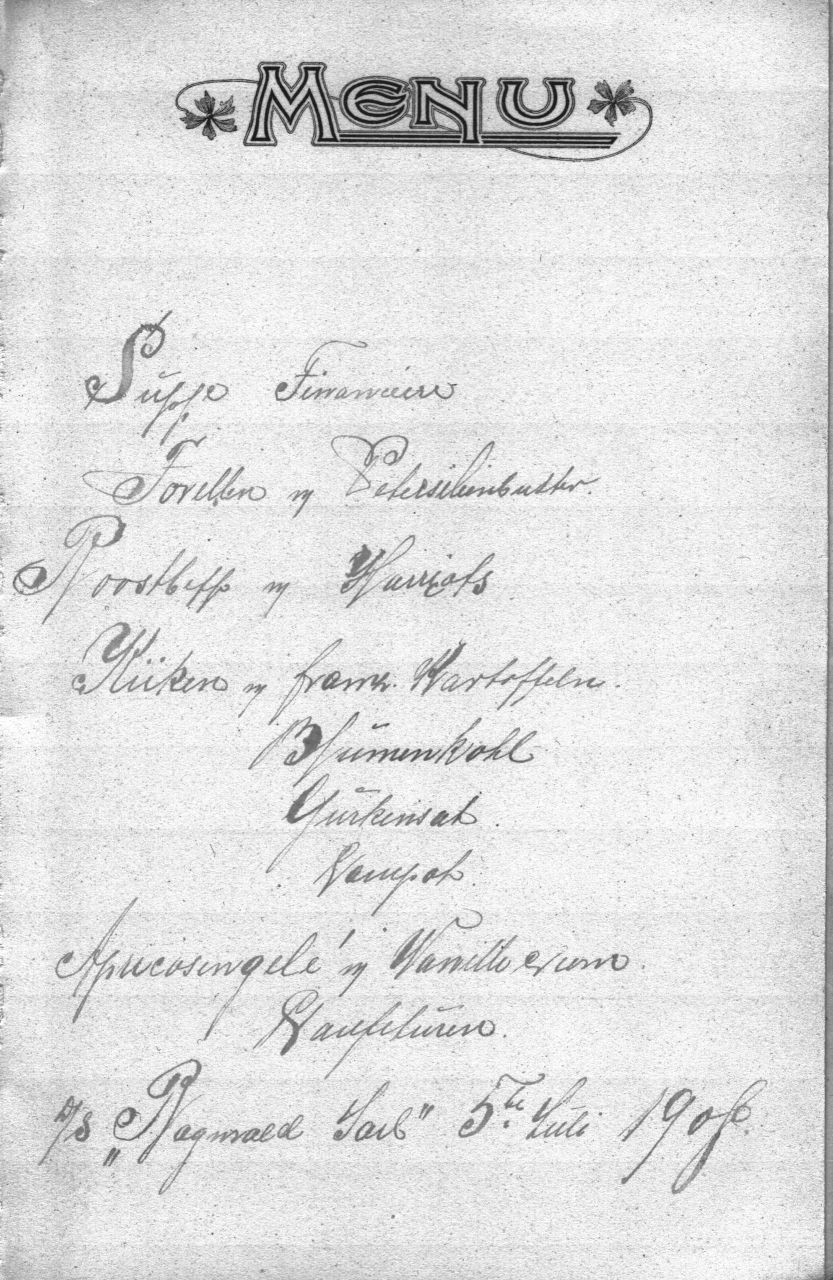 MENU
Suppe Financiere
Forellen m Petersilienbutter.
Roostbeff m Harricots
Küken m franz. Kartoffeln.
Blumenkohl
Gurkensat
Kompot
Apricosengelé m Vanille crem.
Konfituren.
D/S „Ragnvald Jarl" 5te Juli